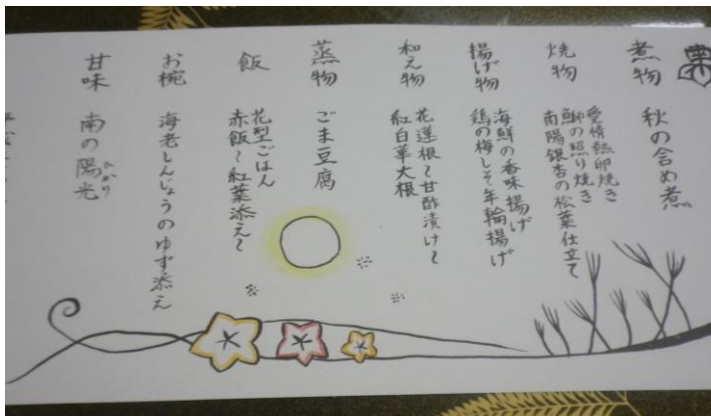 煮物
秋の含め煮
焼物
愛情熱卵焼き
鰤の照り焼き
南陽銀杏の松葉仕立て
揚げ物
海鮮の香味揚げ
鶏の梅しそ年輪揚げ
和え物
花蓮根〜甘酢漬け〜
紅白華大根
蒸物
ごま豆腐
飯
花型ごはん
赤飯〜紅葉添え〜
お椀
海老しんじょうのゆず添え
甘味
南の陽光
ひかり